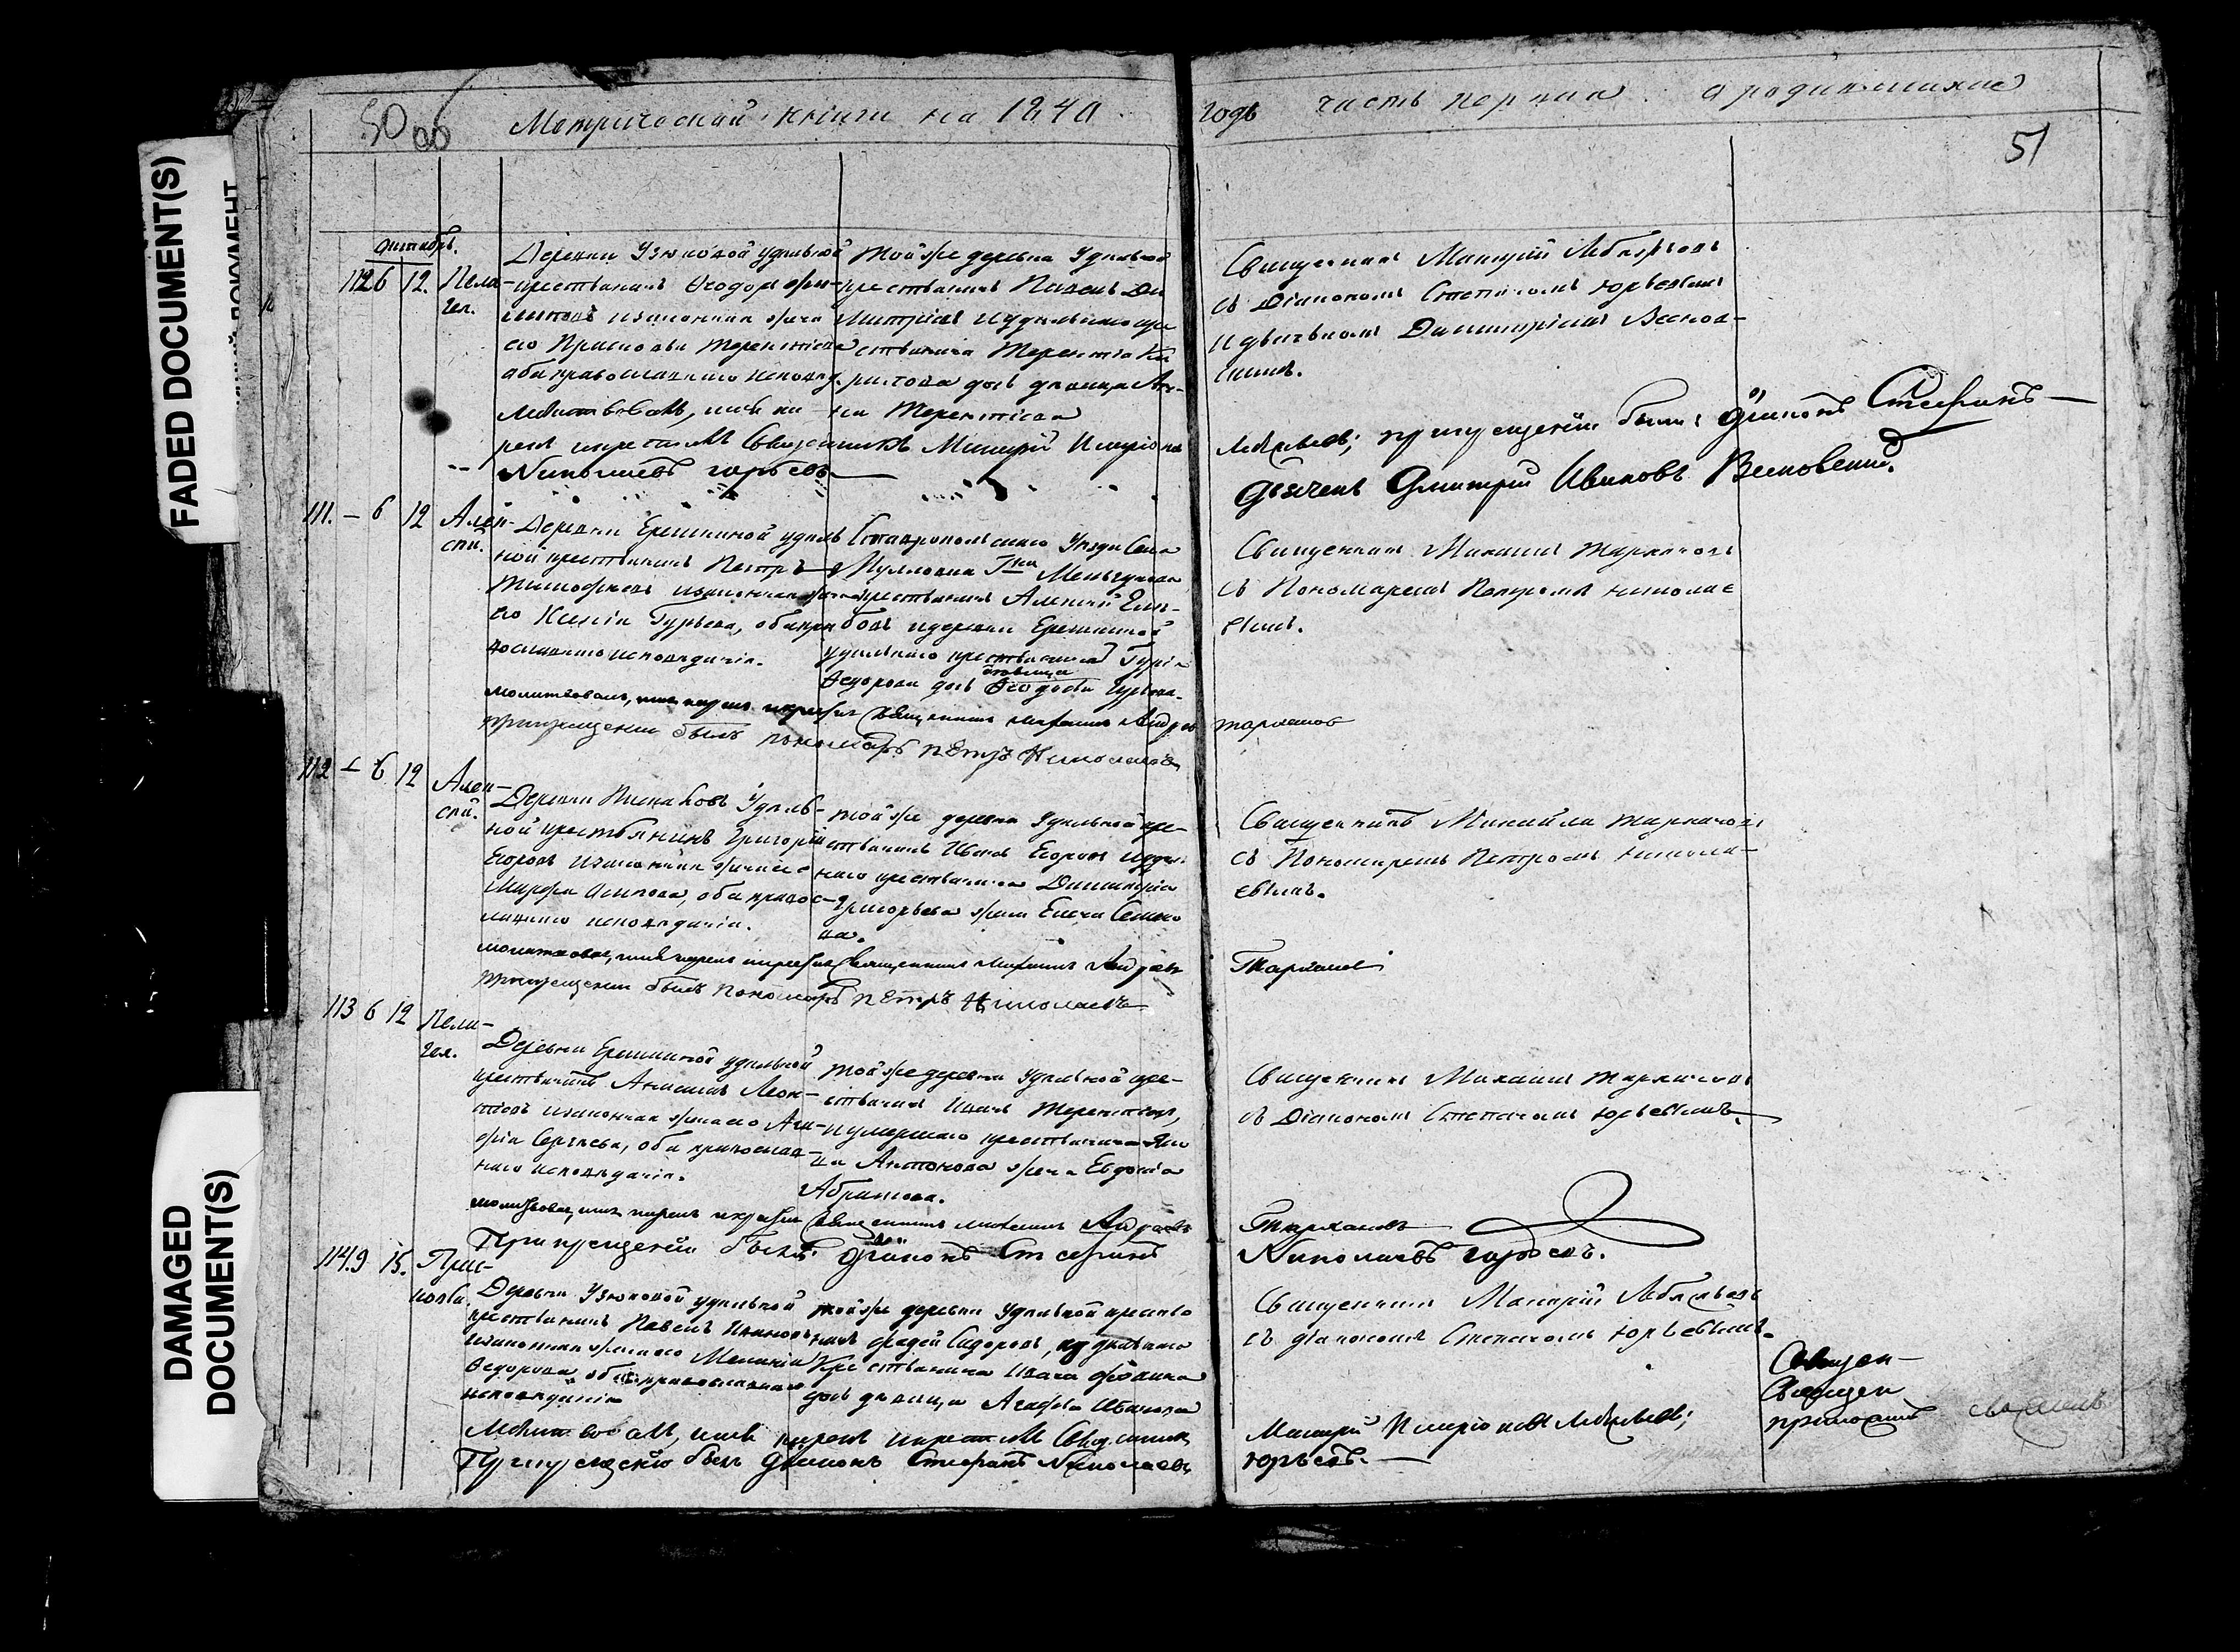 50 об
Метрической книги на 1840
годъ часть первая о родившихся
51
FADED DOCUMENT(S)
DAMAGED DOCUMENT(S)
октябрь.
112 6 12. Пела-
гея.
Деревни Узюковой удельной
крестьянинъ Ѳеодоръ
законная жена
его Прасковья Терентьева
оба православнаго исповед.
Той же деревни Удельной
крестьянинъ Павелъ Ди
митріевъ и удельнаго кре
стьянина Терентія
дочь девица Ан-
на Терентьева
Священникъ Макарій Лебяжьевъ
съ Діакономъ Степаномъ Юрьевымъ
и дьячкомъ Димитріемъ Веснов-
скимъ.
Молитвовалъ, имя на-
рекъ и крестилъ Священникъ Макарій Иларіоновъ
Лебяжьевъ; при крещеніи были: діаконъ Стефанъ
Николаевъ Юрьевъ
дьячекъ Дмитрій Ивановъ Весновскій.
111. – 6 12 Алек-
сей.
Деревни Еремкиной удель
ной крестьянинъ Петръ
Тимофеевъ законная жена
его Ксенія Гурьева, оба пра
вославнаго исповеданія.
Ставропольскаго Уезда Села
Мулловки Гна Меньчукова
крестьянинъ Алексей
и деревни Еремкиной
удельнаго крестьянина Гурія
Ѳедорова дочь девица Ѳеодосія Гурьева.
Священникъ Михаилъ Тархановъ
съ Пономаремъ Петромъ Николае
вымъ.
молитвовалъ, имя нарекъ и крестилъ Священникъ Михаилъ Андреевъ
Тархановъ
при крещеніи былъ пономарь Петръ Николаевъ
112 – 6 12
Алек-
сей.
Деревни Удель-
ной крестьянинъ Григорій
Егоровъ законная жена его
Марфа Осипова, оба правос-
лавнаго исповеданія.
той же деревни Удельной кре-
стьянинъ Иванъ Егоровъ и удель
наго крестьянина Димитрія
Григорьева жена Елена Семено
ва.
Священникъ Михаилъ Тархановъ
съ Пономаремъ Петромъ Никола-
евымъ.
молитвовалъ, имя нарекъ и крестилъ Священникъ Михаилъ Андреевъ
Тархановъ
при крещеніи былъ пономарь Петръ Николаевъ
113 6 12
Пела-
гея.
Деревни Еремкиной удельной
крестьянинъ Леон-
тьевъ законная жена его Ага-
фія Сергеева, оба православ-
наго исповеданія.
Той же деревни Удельной кре-
стьянинъ Иванъ Терентьевъ,
и умершаго крестьянина Яко
ва Антонова жена Евдокія
Абрамова.
Священникъ Михаилъ Тархановъ
съ Діакономъ Степаномъ Юрьевымъ.
молитвовалъ, имя нарекъ и крестилъ Священникъ Михаилъ Андреевъ
Тархановъ
При крещеніи былъ: діаконъ Стефанъ
Николаевъ Юрьевъ.
114. 9 15. Прас-
ковья.
Деревни Узюковой удельной
крестьянинъ Павелъ Ивановъ
законная жена его Меланія
Ѳедорова, оба православнаго
исповеданія
той же деревни Удельной кресть
янинъ Фадей Сидоровъ, и удельнаго
Крестьянина Ивана
дочь девица Агафья Иванова
Священникъ Макарій Лебяжьевъ
съ діакономъ Степаномъ Юрьевымъ.
Молитвовалъ, имя нарекъ и крестилъ Священникъ
Макарій Иларіоновъ Лебяжьевъ;
При крещеніи былъ діаконъ Стефанъ Николаевъ
Юрьевъ.
Священ-
Священ